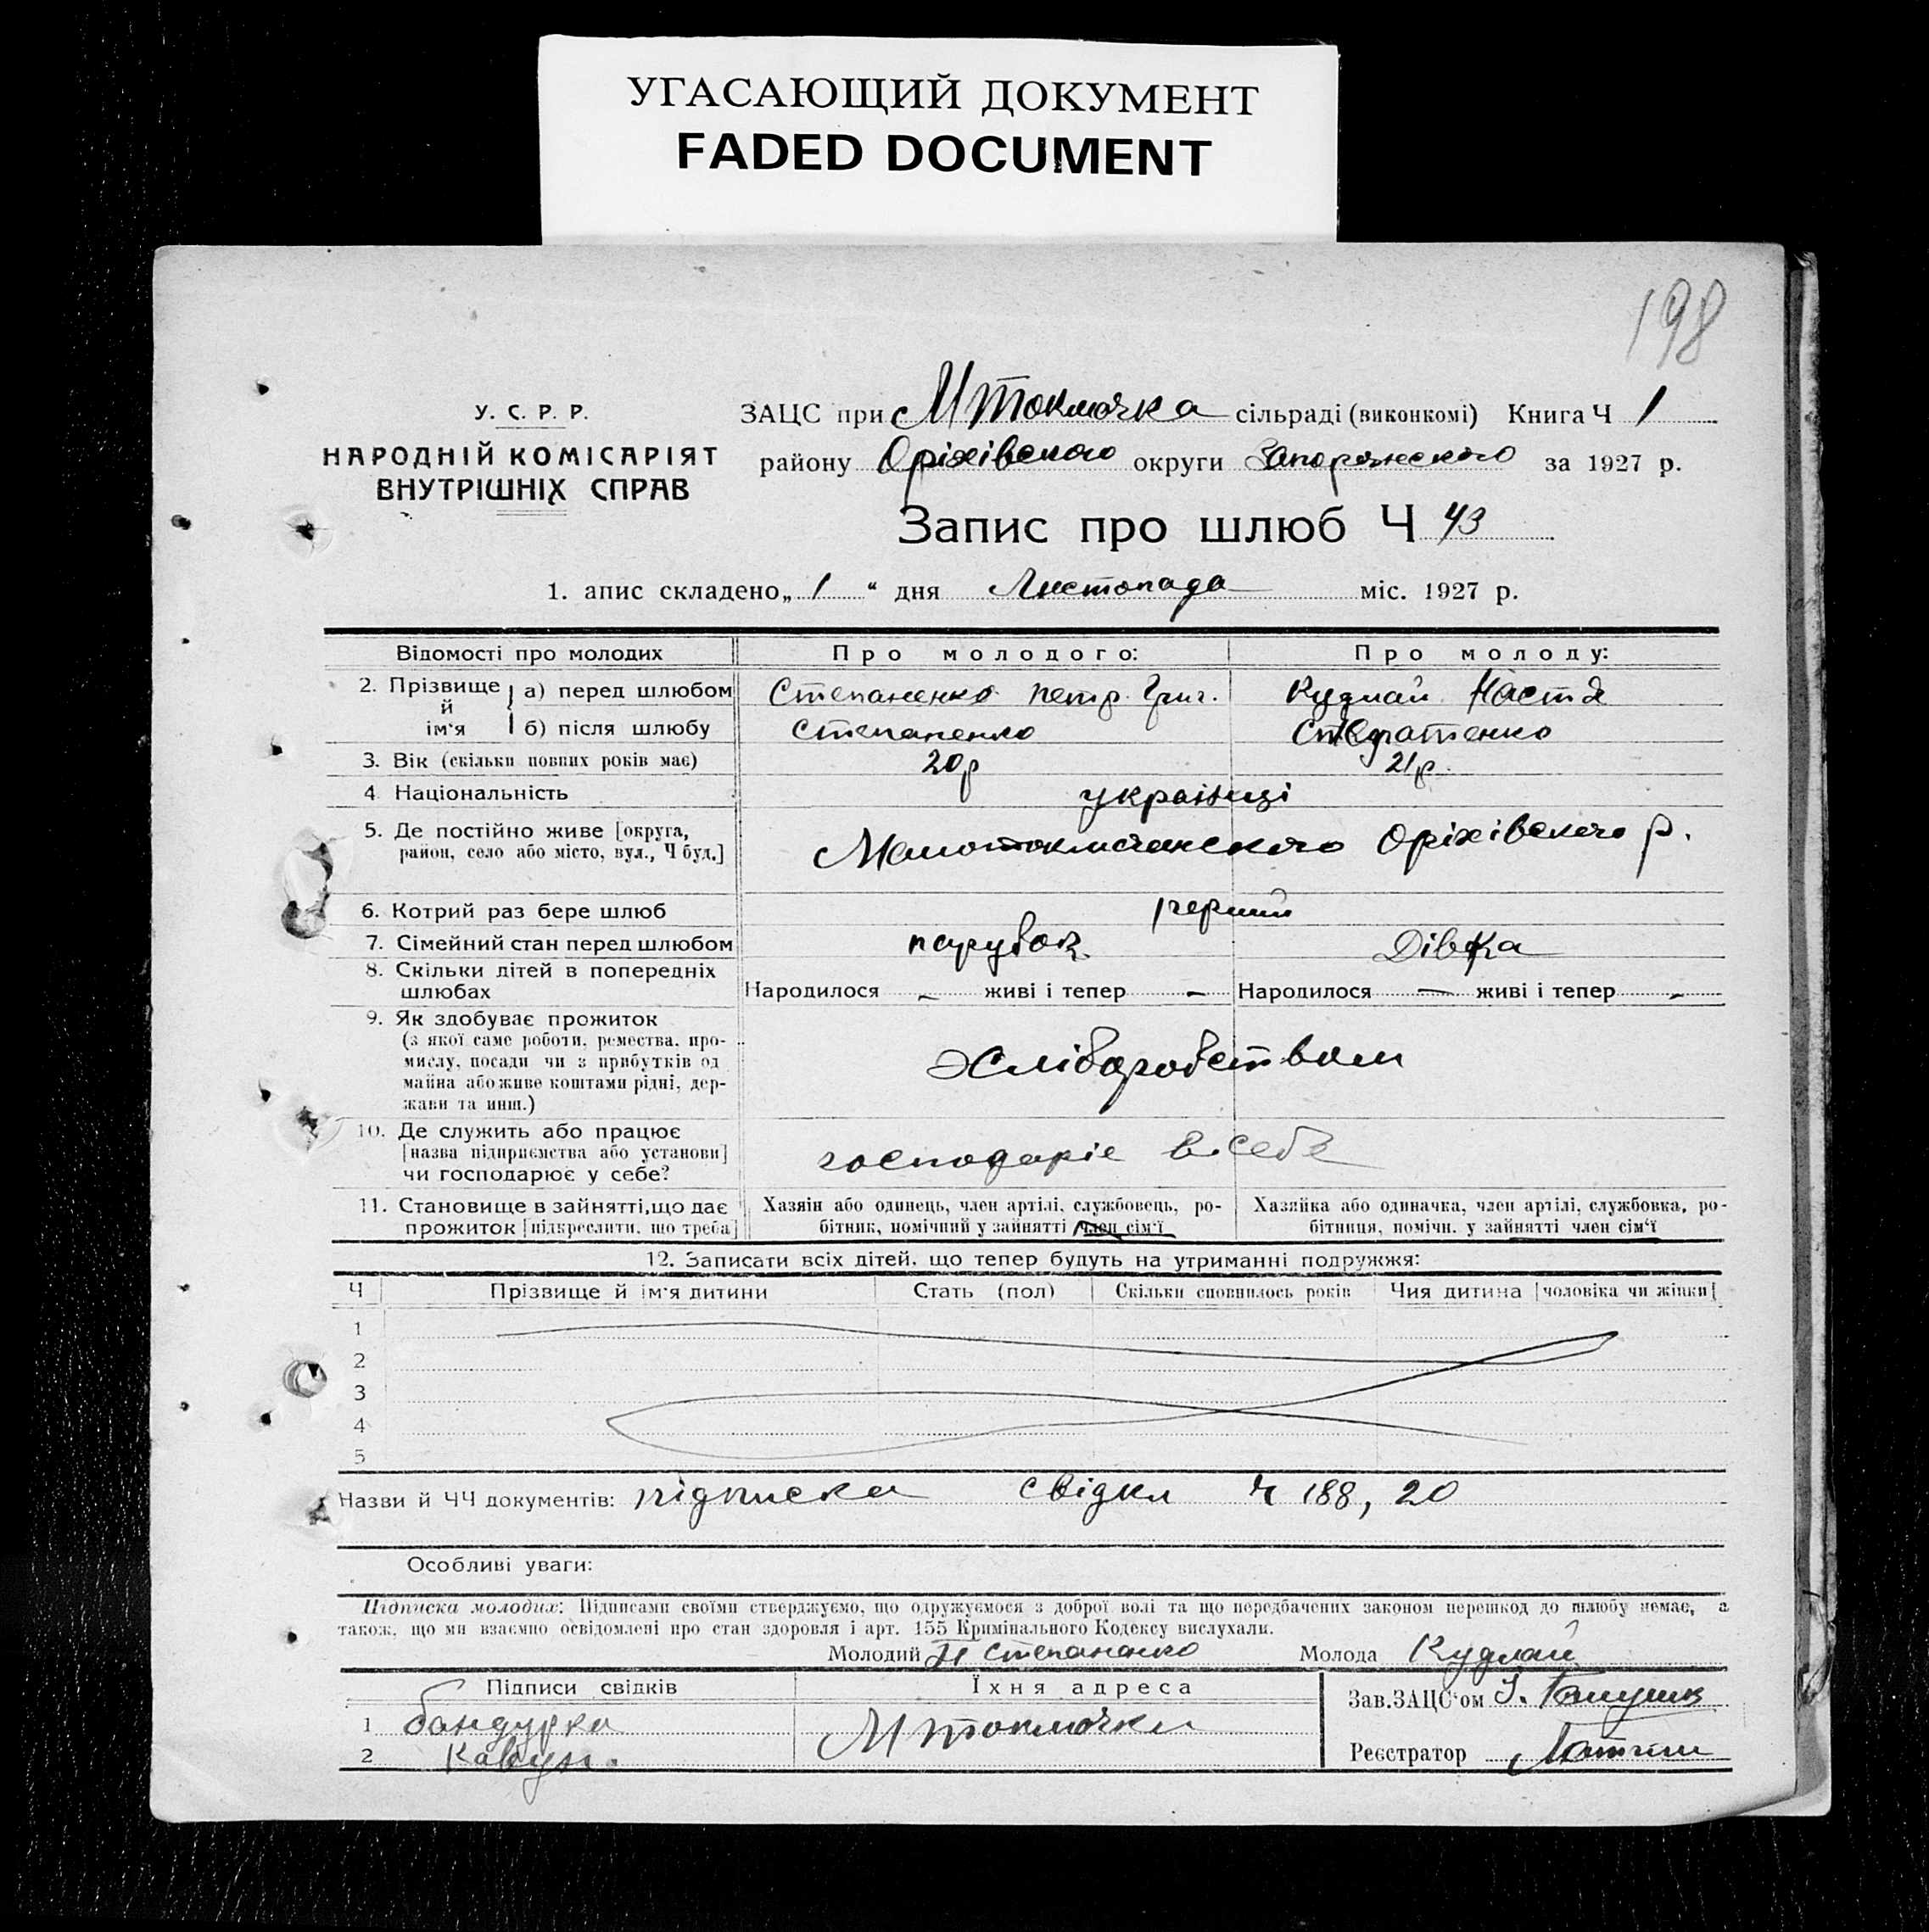 УГАСАЮЩИЙ ДОКУМЕНТ
FADED DOCUMENT
198
У. С. Р. Р.
НАРОДНІЙ КОМІСАРІЯТ
ВНУТРІШНІХ СПРАВ
ЗАЦС при М Токмачка сільраді (виконкомі) Книга Ч 1
району Оріхівського округи Запоріжського за 1927 р.
Запис про шлюб Ч 43
1. апис складено „ 1 “ дня Листопада міс. 1927 р.
Відомості про молодих Про молодого: Про молоду:
2. Прізвище й ім‘я а) перед шлюбом Степаненко петр. Григ. Кудлай Настя
б) після шлюбу Степаненко
3. Вік (скільки повних років має) 20р 21р.
4. Національність українці
5. Де постійно живе [округа,
район, село або місто, вул., Ч буд.] Малотокмачанского Оріхівського р.
6. Котрий раз бере шлюб перший
7. Сімейний стан перед шлюбом парубок Дівка
8. Скільки дітей в попередніх
шлюбах Народилося – живі і тепер – Народилося – живі і тепер -
9. Як здобуває прожиток
(з якої саме роботи, ремества, про-
мислу, посади чи з прибутків од
майна або живе коштами рідні, дер-
жави та инш.)
Хліборобством
10. Де служить або працює
[назва підприємства або установи]
чи господарює у себе?
господаріє в себе
11. Становище в зайнятті, що дає
прожиток [підкреслити, що треба]
Хазяїн або одинець, член артілі, службовець, ро-
бітник, помічний у зайнятті член сім‘ї
Хазяйка або одиначка, член артілі, службовка, ро-
бітниця, помічн. у зайнятті член сім‘ї
12. Записати всіх дітей, що тепер будуть на утриманні подружжя:
Ч Прізвище й ім‘я дитини Стать (пол) Скільки сповнилось років Чия дитина [чоловіка чи жінки[
1
2
3
4
5
Назви й ЧЧ документів: підписка свідки Ч 188, 20
Особливі уваги:
Підписка молодих: Підписами своїми стверджуємо, що одружуємося з доброї волі та що передбачених законом перешкод до шлюбу немає, а
також, що ми взаємно освідомлені про стан здоровля і арт. 155 Кримінального Кодексу вислухали.
Молодий П Степаненко Молода Кудлай
Підписи свідків Їхня адреса
1 бандурка М Токмачки
2 Кавун.
Зав.ЗАЦС‘ом
Реєстратор